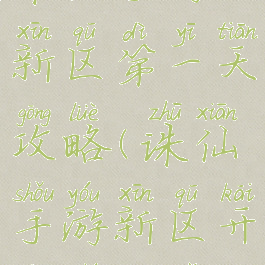 xīn qū dì yī tiān
新区第一天
gōng lüè zhū xiān
攻略(诛仙
shǒu yóu xīn qū kāi
手游新区开